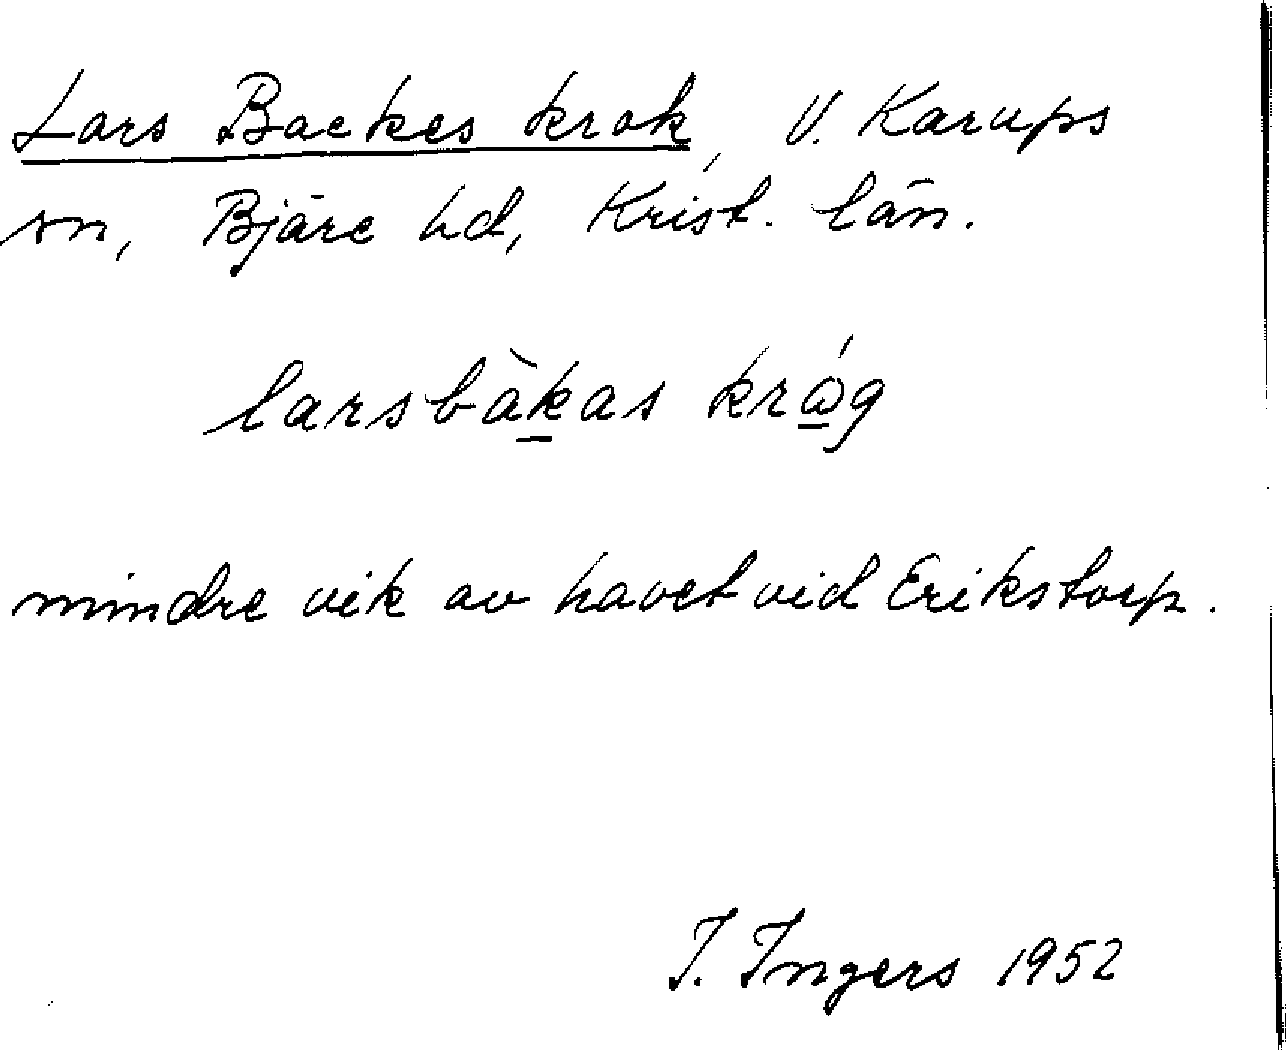 Lars Backes krok, V. Karups
sn, Bjäre hd, Krist. län.
larsbàkas króg
mindre vik av havet vid Erikstorp.
I. Ingers 1952